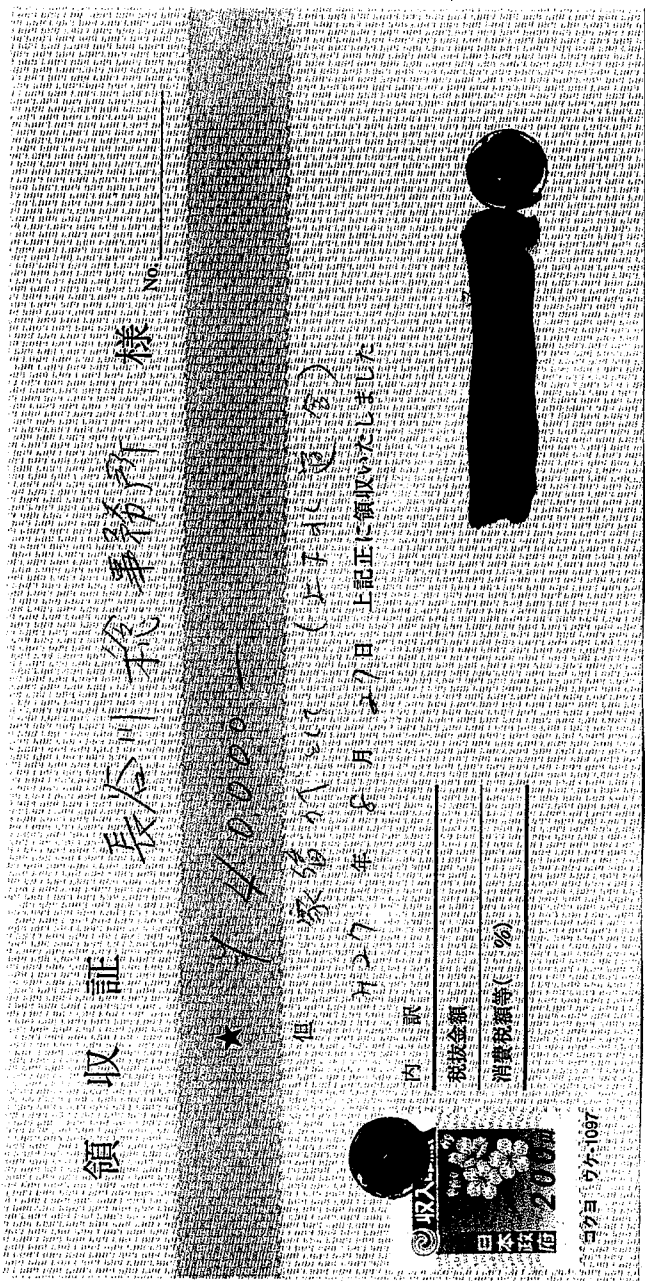 領収証
長谷川 事務所 様
No.
★ ¥40000—
但 として
H27年8月27日 上記正に領収いたしました
内訳
税抜金額
消費税額等( %)
収入
日本政府
200
コクヨ ウケ-1097